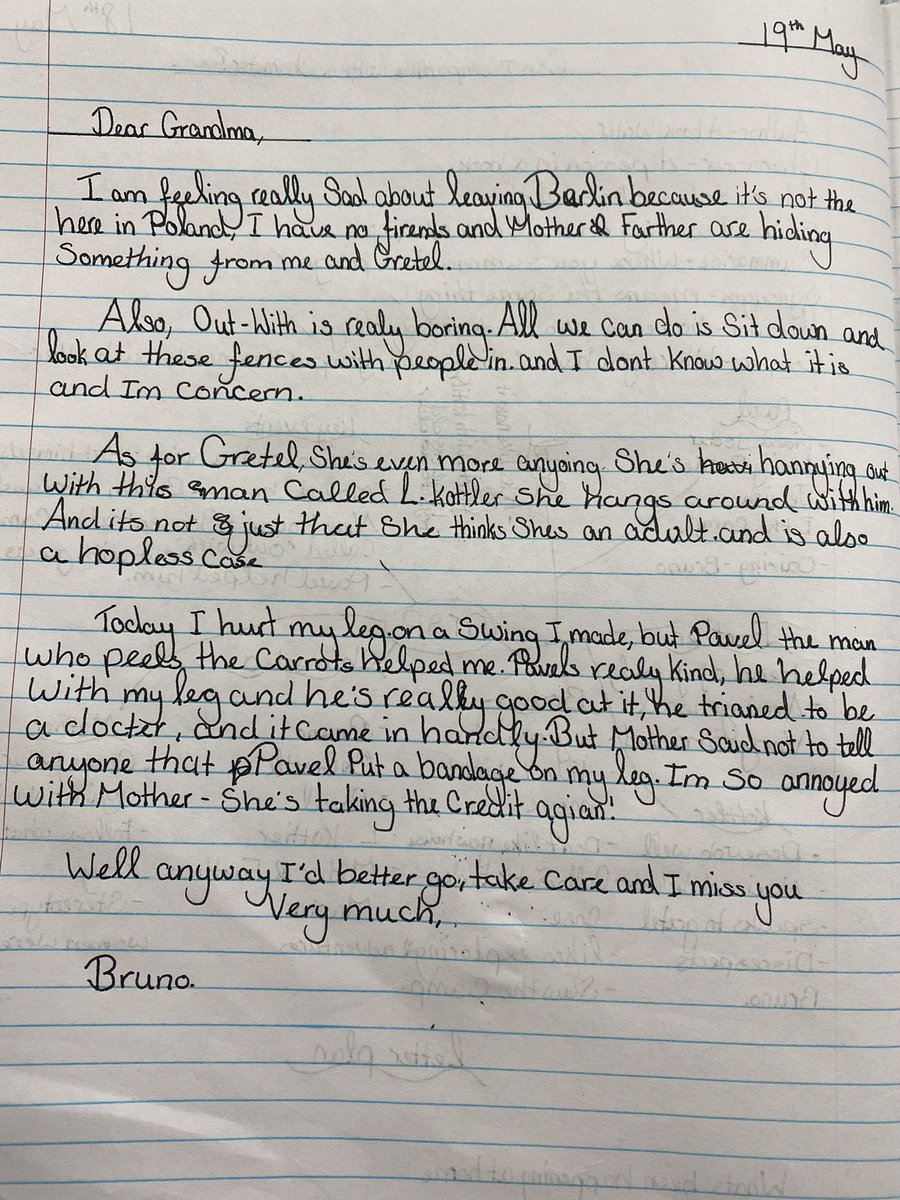 19th May
Dear Grandma,
I am feeling really Sad about leaving Berlin because it's not the
here in Poland, I have no firends and Mother & Farther are hiding
Something from me and Gretel.
Also, Out-With is realy boring. All we can do is Sit down and
look at these fences with people in. and I dont know what it is
and Im Concern.
As for Gretel, She's even more anyoing. She's hannying out
With this man Called L. Kottler She hangs around with him.
And its not just that She thinks Shes an adult. and is also
a hopless Case
Today I hurt my leg. on a Swing I made, but Pavel the man
who peels the Carrots helped me. Pavels realy kind, he helped
With my leg and he's really good at it, he trianed to be
a doctor, and it Came in handly. But Mother Said not to tell
anyone that Pavel Put a bandage on my leg. Im So annoyed
With Mother - She's taking the Credit agian!
Well anyway I'd better go, take Care and I miss you
Very much,
Bruno.
Letter plan